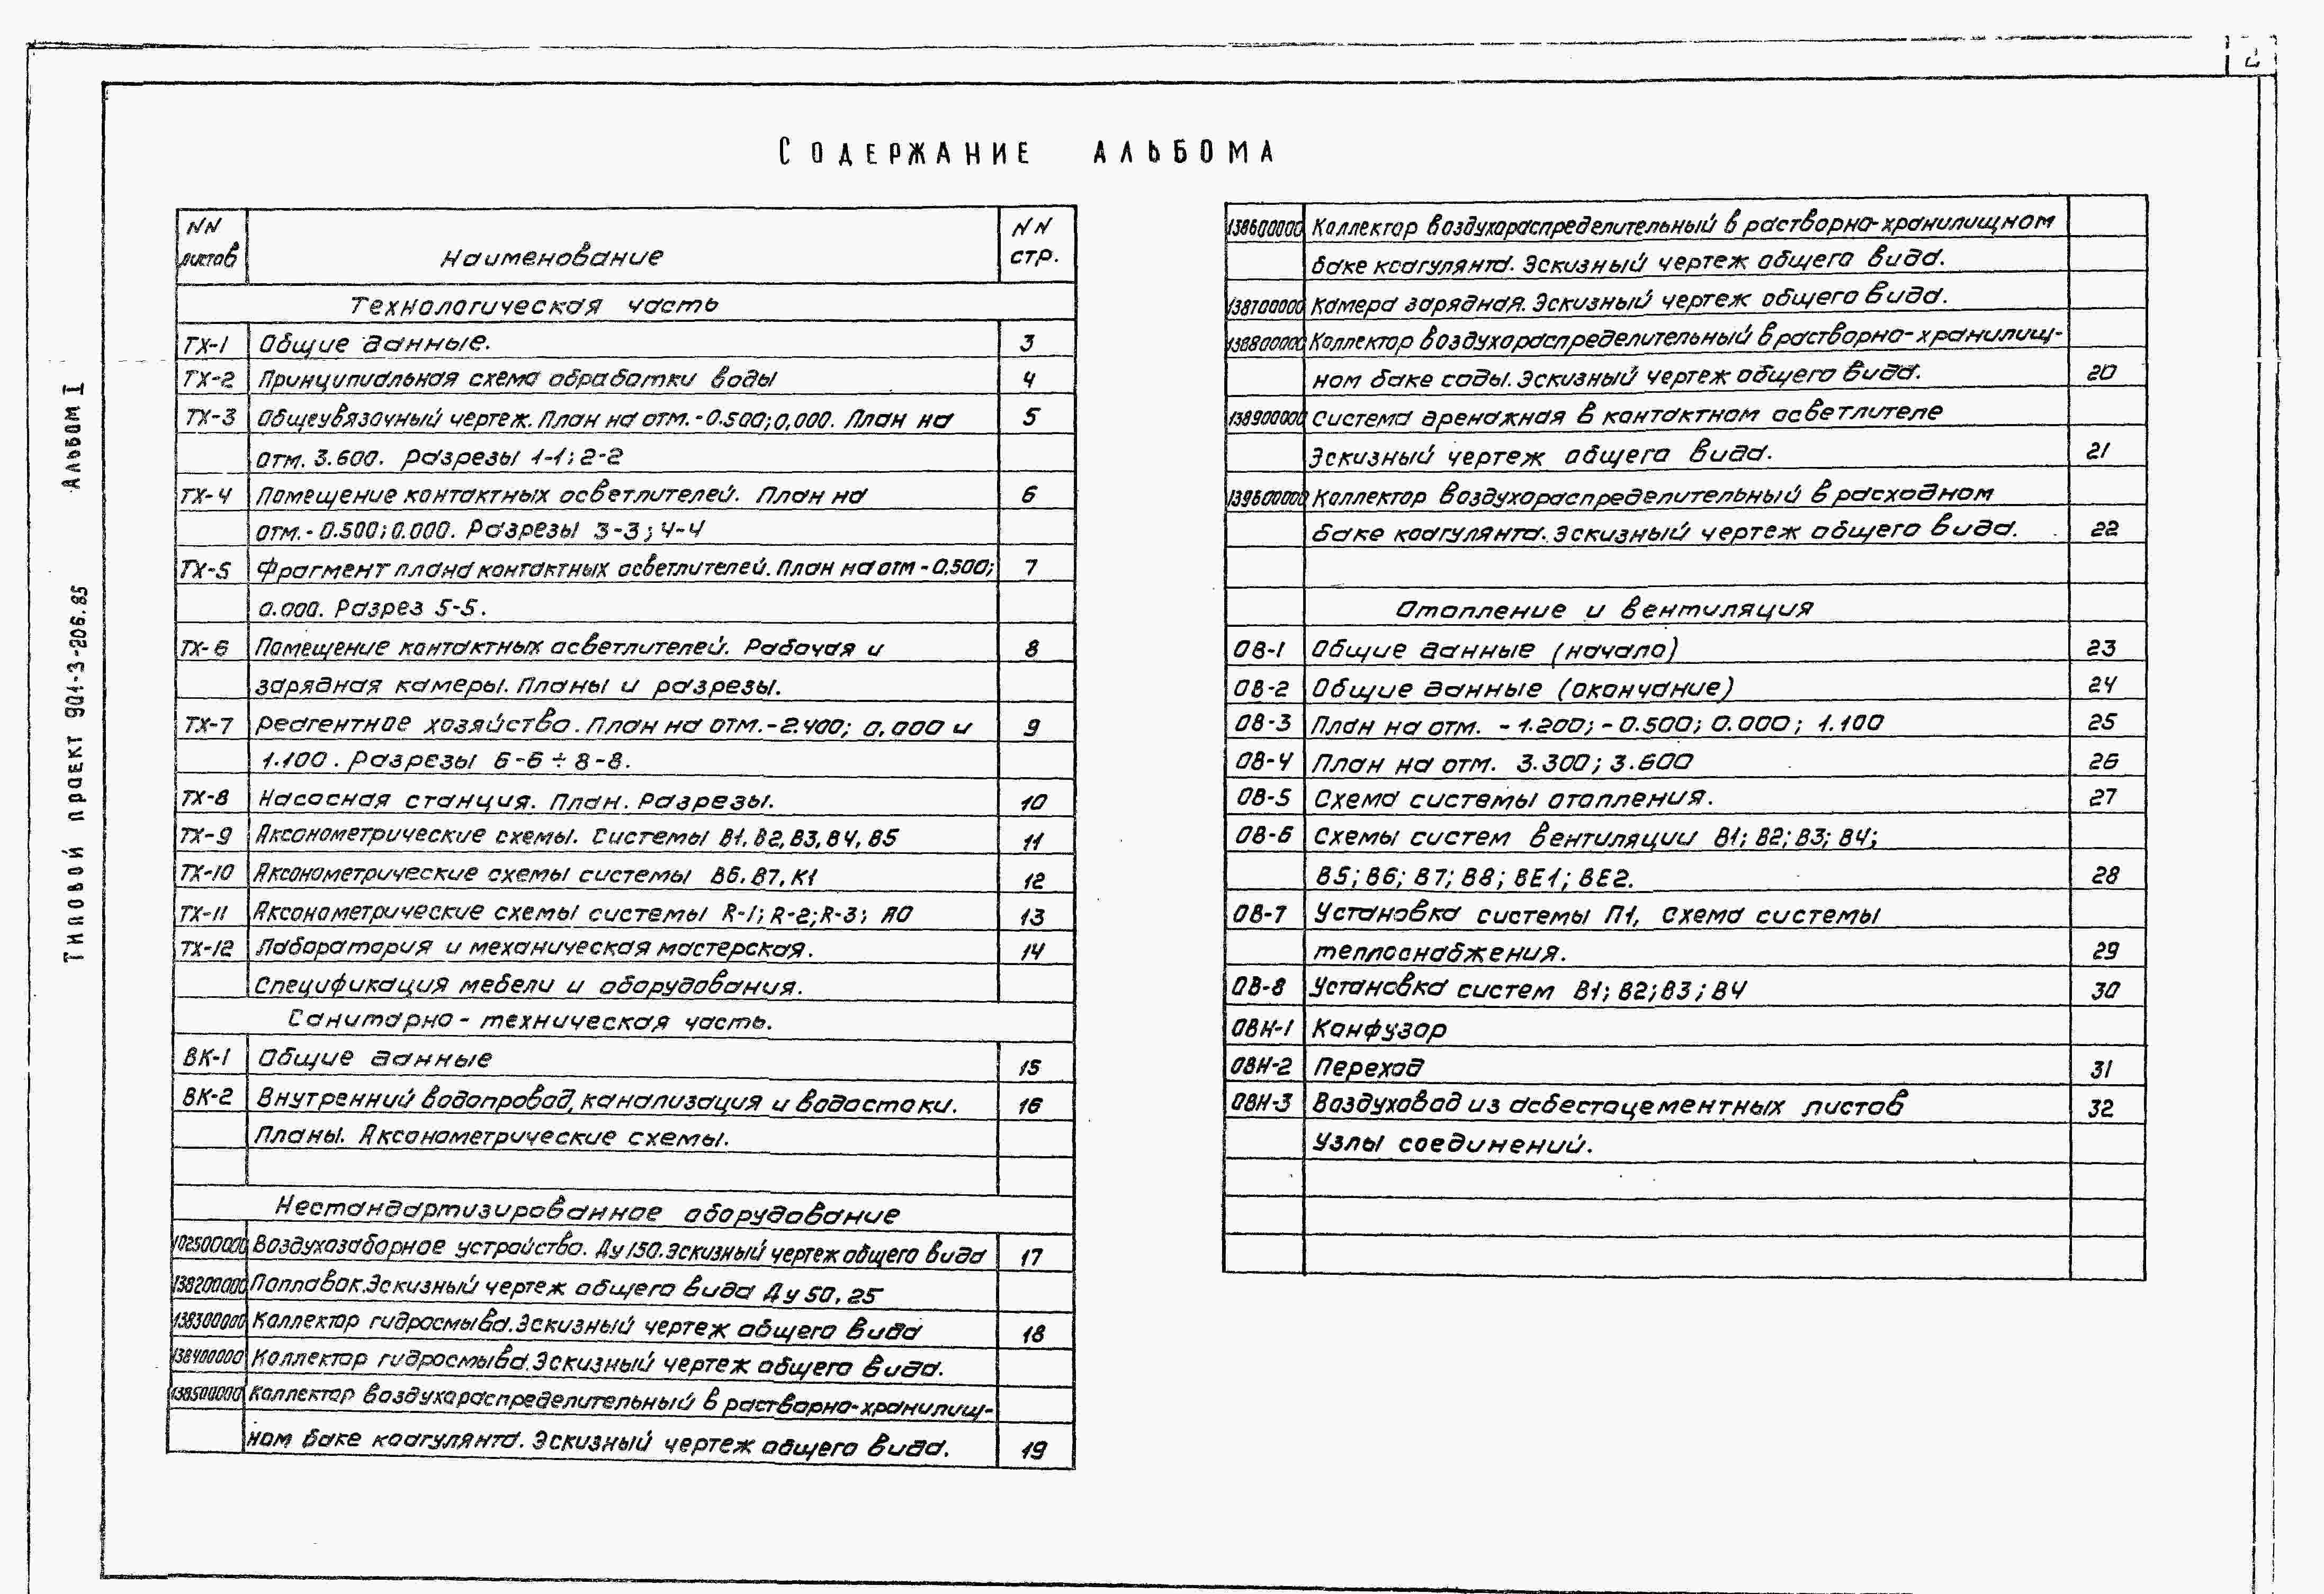 2
Содержание альбома
NN листов Наименование NN стр.
Технологическая часть
ТХ-1 Общие данные. 3
ТХ-2 Принципиальная схема обработки воды 4
ТХ-3 Общеувязочный чертеж. План на отм.-0.500; 0,000. План на 5
отм. 3.600. Разрезы 1-1; 2-2
ТХ-4 Помещение контактных осветлителей. План на 6
отм.-0.500; 0.000. Разрезы 3-3; 4-4
ТХ-5 Фрагмент плана контактных осветлителей. План на отм-0.500; 7
0.000. Разрез 5-5.
ТХ-6 Помещение контактных осветлителей. Рабочая и 8
зарядная камеры. Планы и разрезы.
ТХ-7 Реагентное хозяйство. План на отм.-2.400; 0,000 и 9
1.100. Разрезы 6-6÷8-8.
ТХ-8 Насосная станция. План. Разрезы. 10
ТХ-9 Аксонометрические схемы. Системы В1, В2, В3, В4, В5 11
ТХ-10 Аксонометрические схемы системы В6, В7, К1 12
ТХ-11 Аксонометрические схемы системы R-1; R-2; R-3; А0 13
ТХ-12 Лаборатория и механическая мастерская. 14
Спецификация мебели и оборудования.
Санитарно-техническая часть.
ВК-1 Общие данные 15
ВК-2 Внутренний водопровод, канализация и водостоки. 16
Планы. Аксонометрические схемы.
Нестандартизированное оборудование
102500000 Воздухозаборное устройство. Ду150. Эскизный чертеж общего вида 17
138200000 Поплавок. Эскизный чертеж общего вида Ду 50, 25
138300000 Коллектор гидросмыва. Эскизный чертеж общего вида 18
138400000 Коллектор гидросмыва. Эскизный чертеж общего вида.
138500000 Коллектор воздухораспределительный в растворно-хранилищ-
ном баке коагулянта. Эскизный чертеж общего вида. 19
138600000 Коллектор воздухораспределительный в растворно-хранилищном
баке коагулянта. Эскизный чертеж общего вида.
138700000 Камера зарядная. Эскизный чертеж общего вида.
138800000 Коллектор воздухораспределительный в растворно-хранилищ-
ном баке соды. Эскизный чертеж общего вида. 20
138900000 Система дренажная в контактном осветлителе
Эскизный чертеж общего вида. 21
139600000 Коллектор воздухораспределительный в расходном
баке коагулянта. Эскизный чертеж общего вида. 22
Отопление и вентиляция
ОВ-1 Общие данные (начало) 23
ОВ-2 Общие данные (окончание) 24
ОВ-3 План на отм. -1.200; -0.500; 0.000; 1.100 25
ОВ-4 План на отм. 3.300; 3.600 26
ОВ-5 Схема системы отопления. 27
ОВ-6 Схемы систем вентиляции В1; В2; В3; В4;
В5; В6; В7; В8; ВЕ1; ВЕ2. 28
ОВ-7 Установка системы П1, схема системы
теплоснабжения. 29
ОВ-8 Установка систем В1; В2; В3; В4 30
ОВН-1 Конфузор
ОВН-2 Переход 31
ОВН-3 Воздуховод из асбестоцементных листов 32
Узлы соединений.
Типовой проект 901-3-206.85 Альбом I